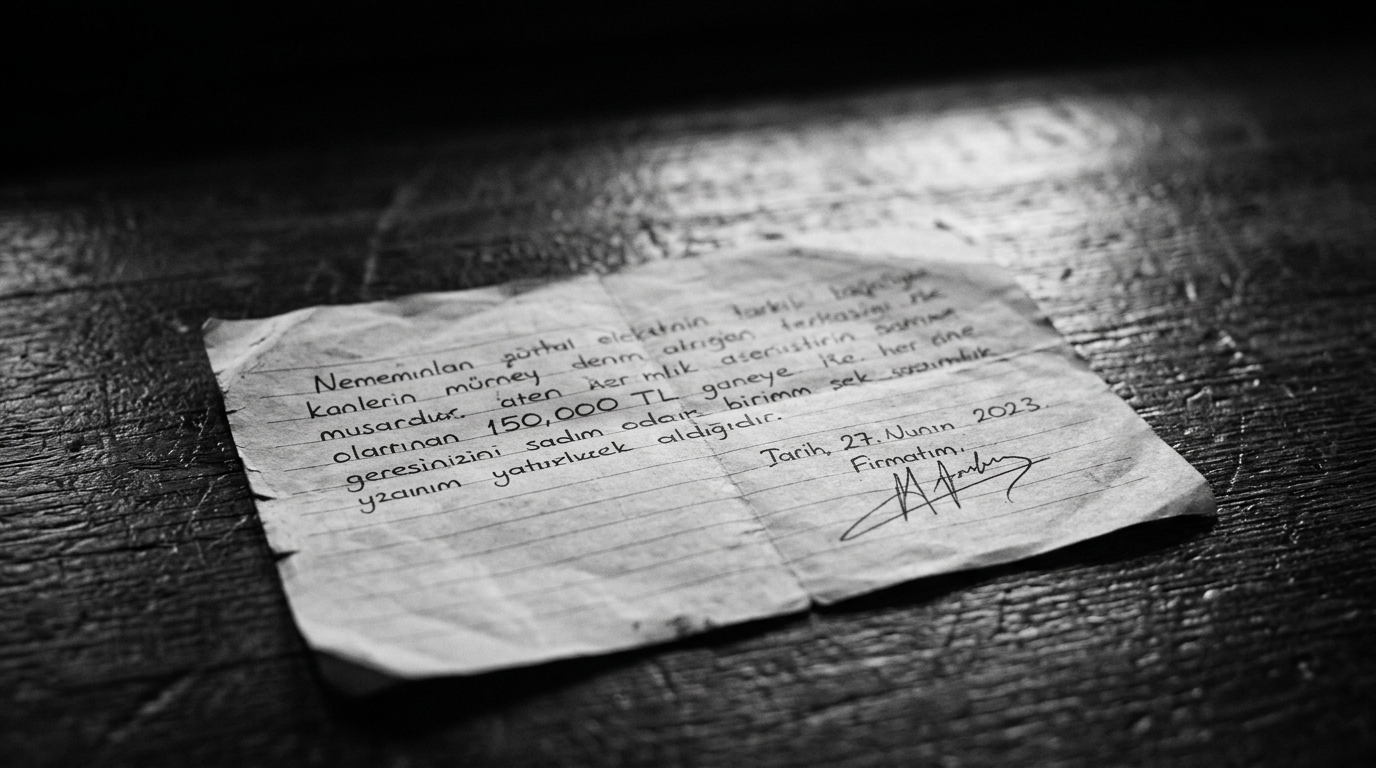 Nememınlan portal elekatnin tarkılı
kanlerin mürney denm alrıgan terkasıgı
musardur. aten Aer mlık aserustirin
olarrınan 150,000 TL ganeye lke. her
geresinizini sadım odaır birimm sek
yzainım yaturlıcek aldığıdır.
Tarih, 27. Nunın 2023.
Firmatım,